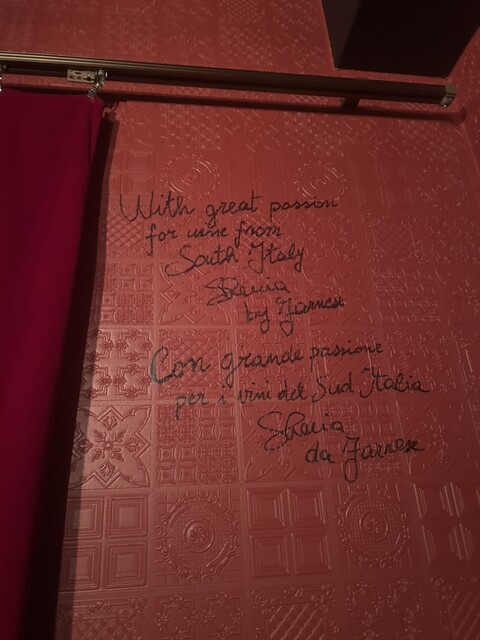 With great passion
for wine from
South Italy
by Farnese
Con grande passione
per i vini del Sud Italia
da Farnese